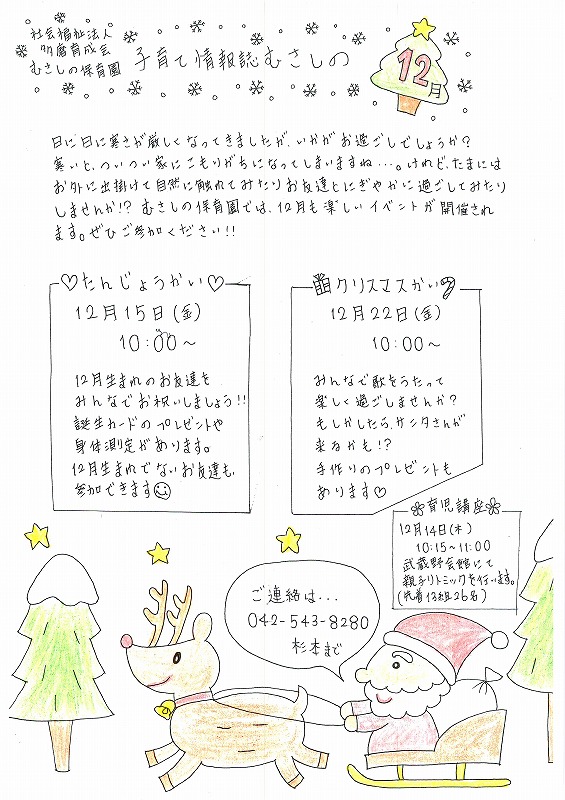 社会福祉法人
多磨育成会
むさしの保育園
子育て情報誌むさしの
12
月
日に日に寒さが厳しくなってきましたが、いかがお過ごしでしょうか?
寒いと、ついつい家にこもりがちになってしまいますね…。けれど、たまには
お外に出掛けて自然に触れてみたりお友達とにぎやかに過ごしてみたり
しませんか!? むさしの保育園では、12月も楽しいイベントが開催され
ます。ぜひご参加ください!!
♡たんじょうかい♡
12月15日(金)
10:00~
12月生まれのお友達を
みんなでお祝いしましょう!!
誕生カードのプレゼントや
身体測定があります。
12月生まれでないお友達も、
参加できます
クリスマスかい
12月22日(金)
10:00~
みんなで歌をうたって
楽しく過ごしませんか?
もしかしたら、サンタさんが
来るかも!?
手作りのプレゼントも
あります♡
育児講座
12月14日(木)
10:15~11:00
武蔵野会館にて
親子リトミックを行います。
(先着13組26名)
ご連絡は…
042-543-8280
杉本まで